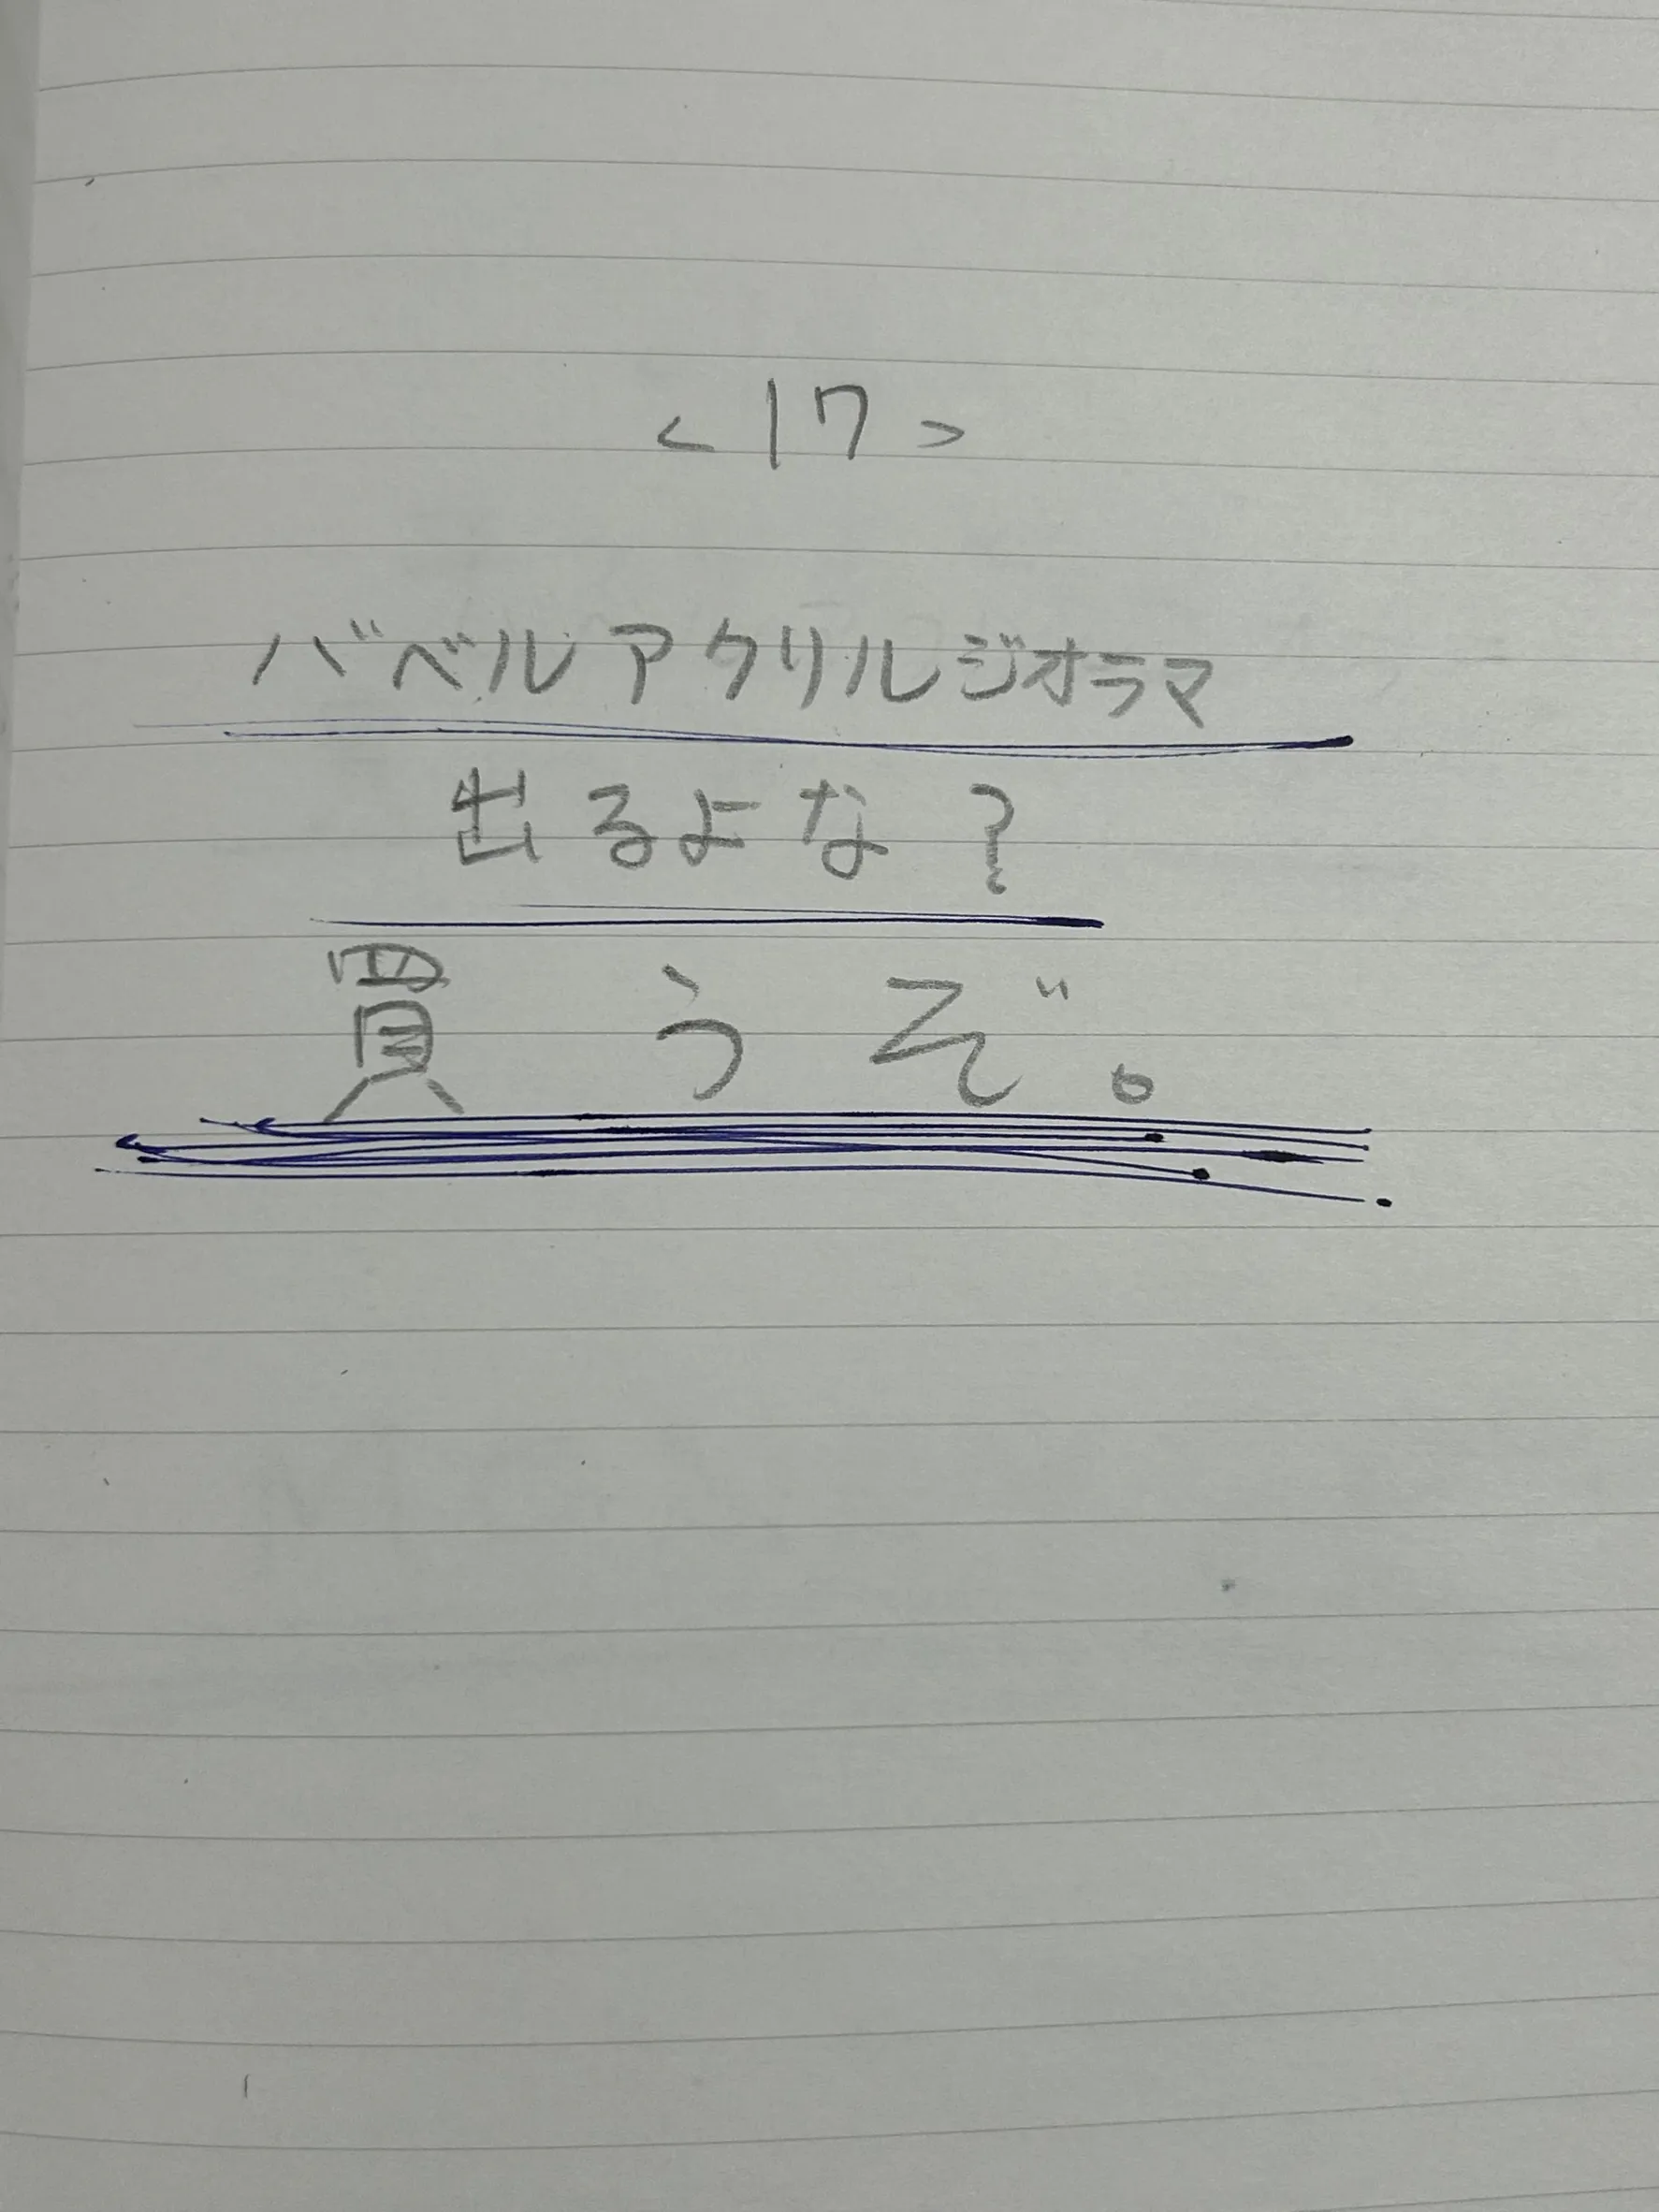 <17>
バベルアクリルジオラマ
出るよな?
買うぞ。